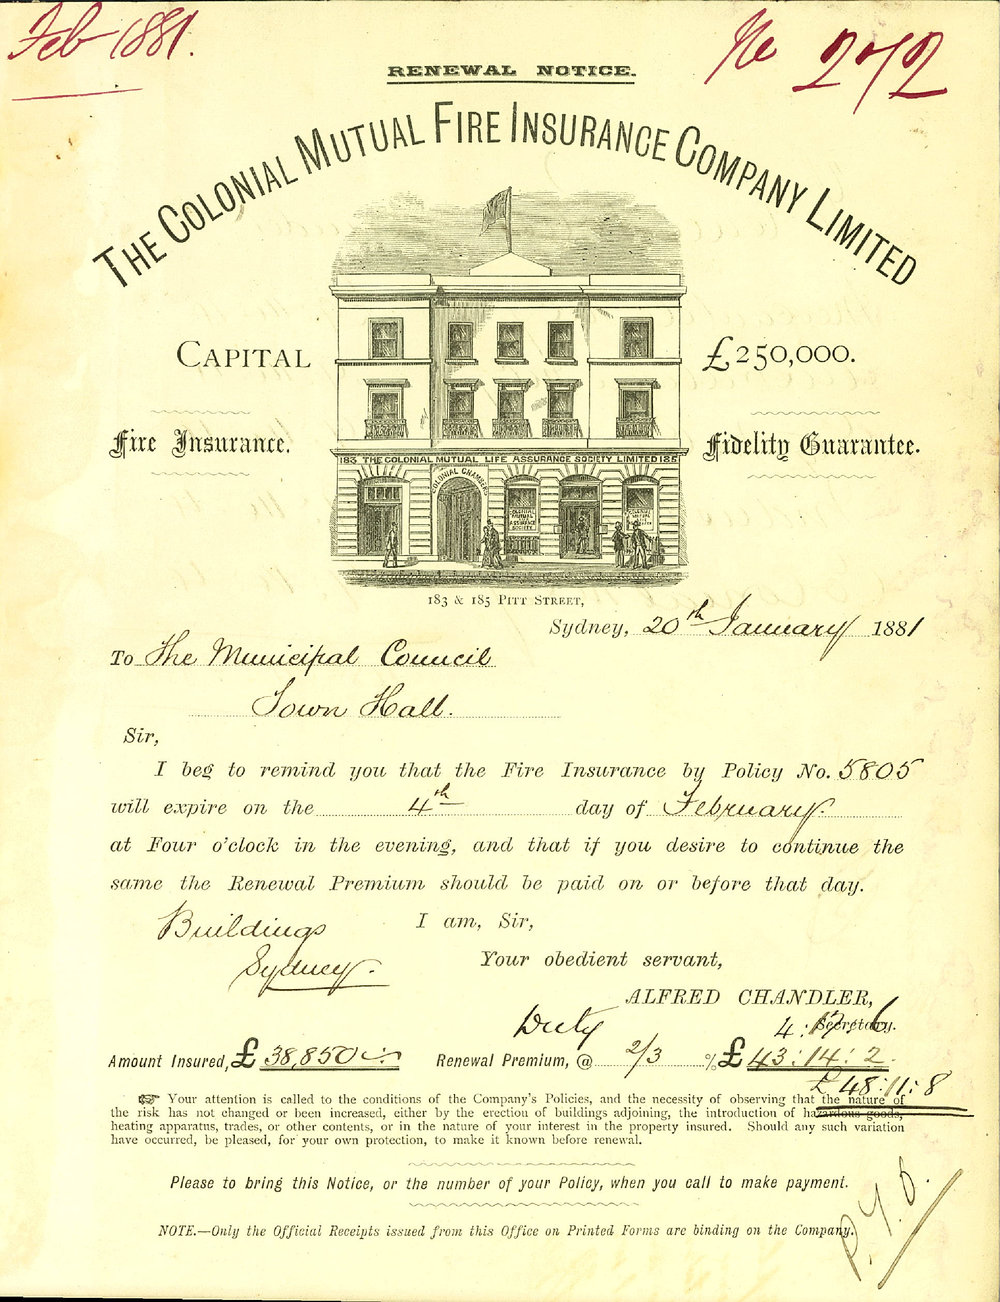 Feb 1881.
No 272
RENEWAL NOTICE.
THE COLONIAL MUTUAL FIRE INSURANCE COMPANY LIMITED
CAPITAL £250,000.
Fire Insurance. Fidelity Guarantee.
183 THE COLONIAL MUTUAL LIFE ASSURANCE SOCIETY LIMITED 185
COLONIAL CHAMBERS
COLONIAL MUTUAL LIFE ASSURANCE SOCIETY
183 & 185 PITT STREET,
Sydney, 20th January 1881
To The Municipal Council
Town Hall.
Sir,
I beg to remind you that the Fire Insurance by Policy No. 5805
will expire on the 4th day of February.
at Four o'clock in the evening, and that if you desire to continue the
same the Renewal Premium should be paid on or before that day.
Buildings
Sydney.
I am, Sir,
Your obedient servant,
ALFRED CHANDLER,
Secretary.
Duty 4:17:6
Amount Insured, £ 38,850 Renewal Premium, @ 2/3 % £ 43:14:2.
£48:11:8
☞ Your attention is called to the conditions of the Company's Policies, and the necessity of observing that the nature of
the risk has not changed or been increased, either by the erection of buildings adjoining, the introduction of hazardous goods,
heating apparatus, trades, or other contents, or in the nature of your interest in the property insured. Should any such variation
have occurred, be pleased, for your own protection, to make it known before renewal.
Please to bring this Notice, or the number of your Policy, when you call to make payment.
NOTE.—Only the Official Receipts issued from this Office on Printed Forms are binding on the Company.